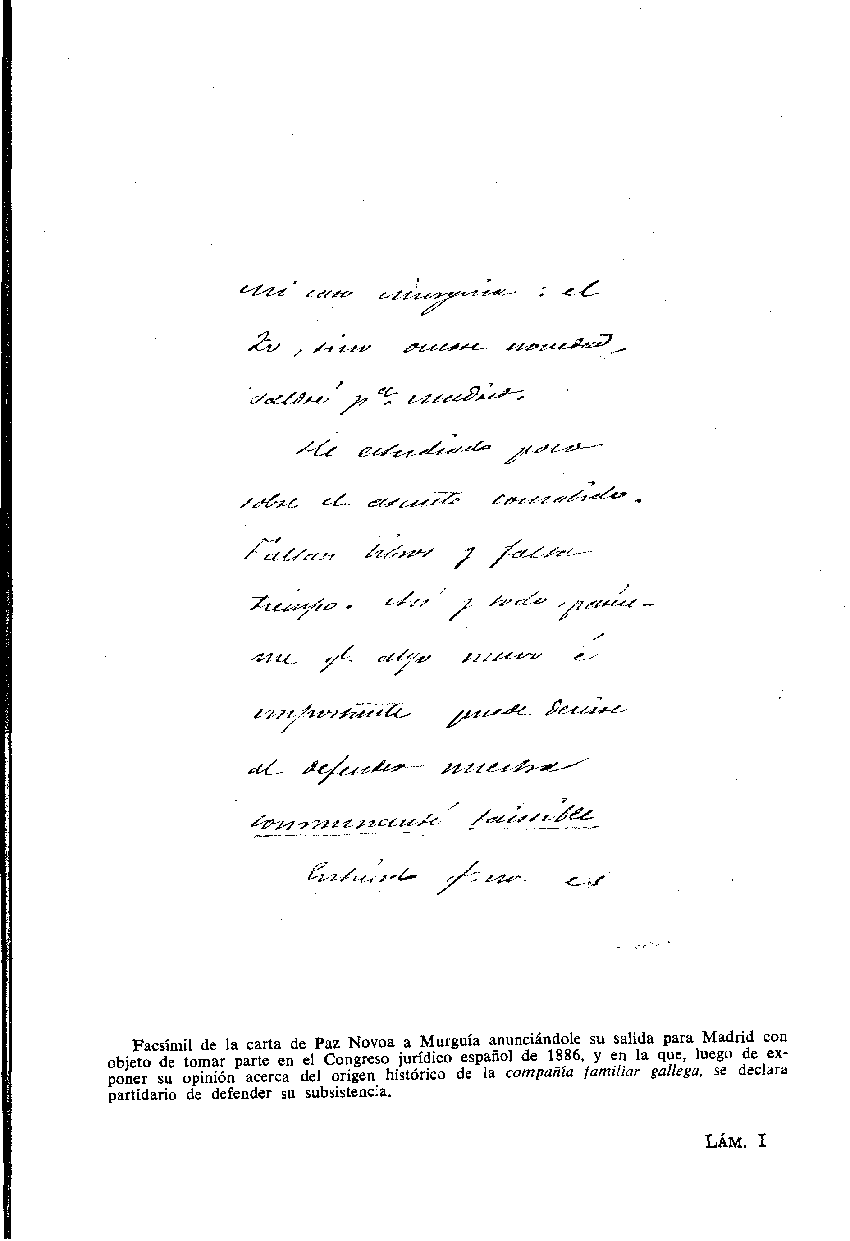 Mi caro Murguía: el
20, sino ocurre novedad,
saldré pª. Madrid.
He estudiado poco
sobre el asunto consabido.
Faltan libros y falta
tiempo. Así y todo, paréce-
me q̄ algo nuevo é
importante puede decirse
al defender nuestra
comunidad
Entiendo q. no es
Facsímil de la carta de Paz Novoa a Murguía anunciándole su salida para Madrid con
objeto de tomar parte en el Congreso jurídico español de 1886, y en la que, luego de ex-
poner su opinión acerca del origen histórico de la compañía familiar gallega, se declara
partidario de defender su subsistencia.
LÁM. I